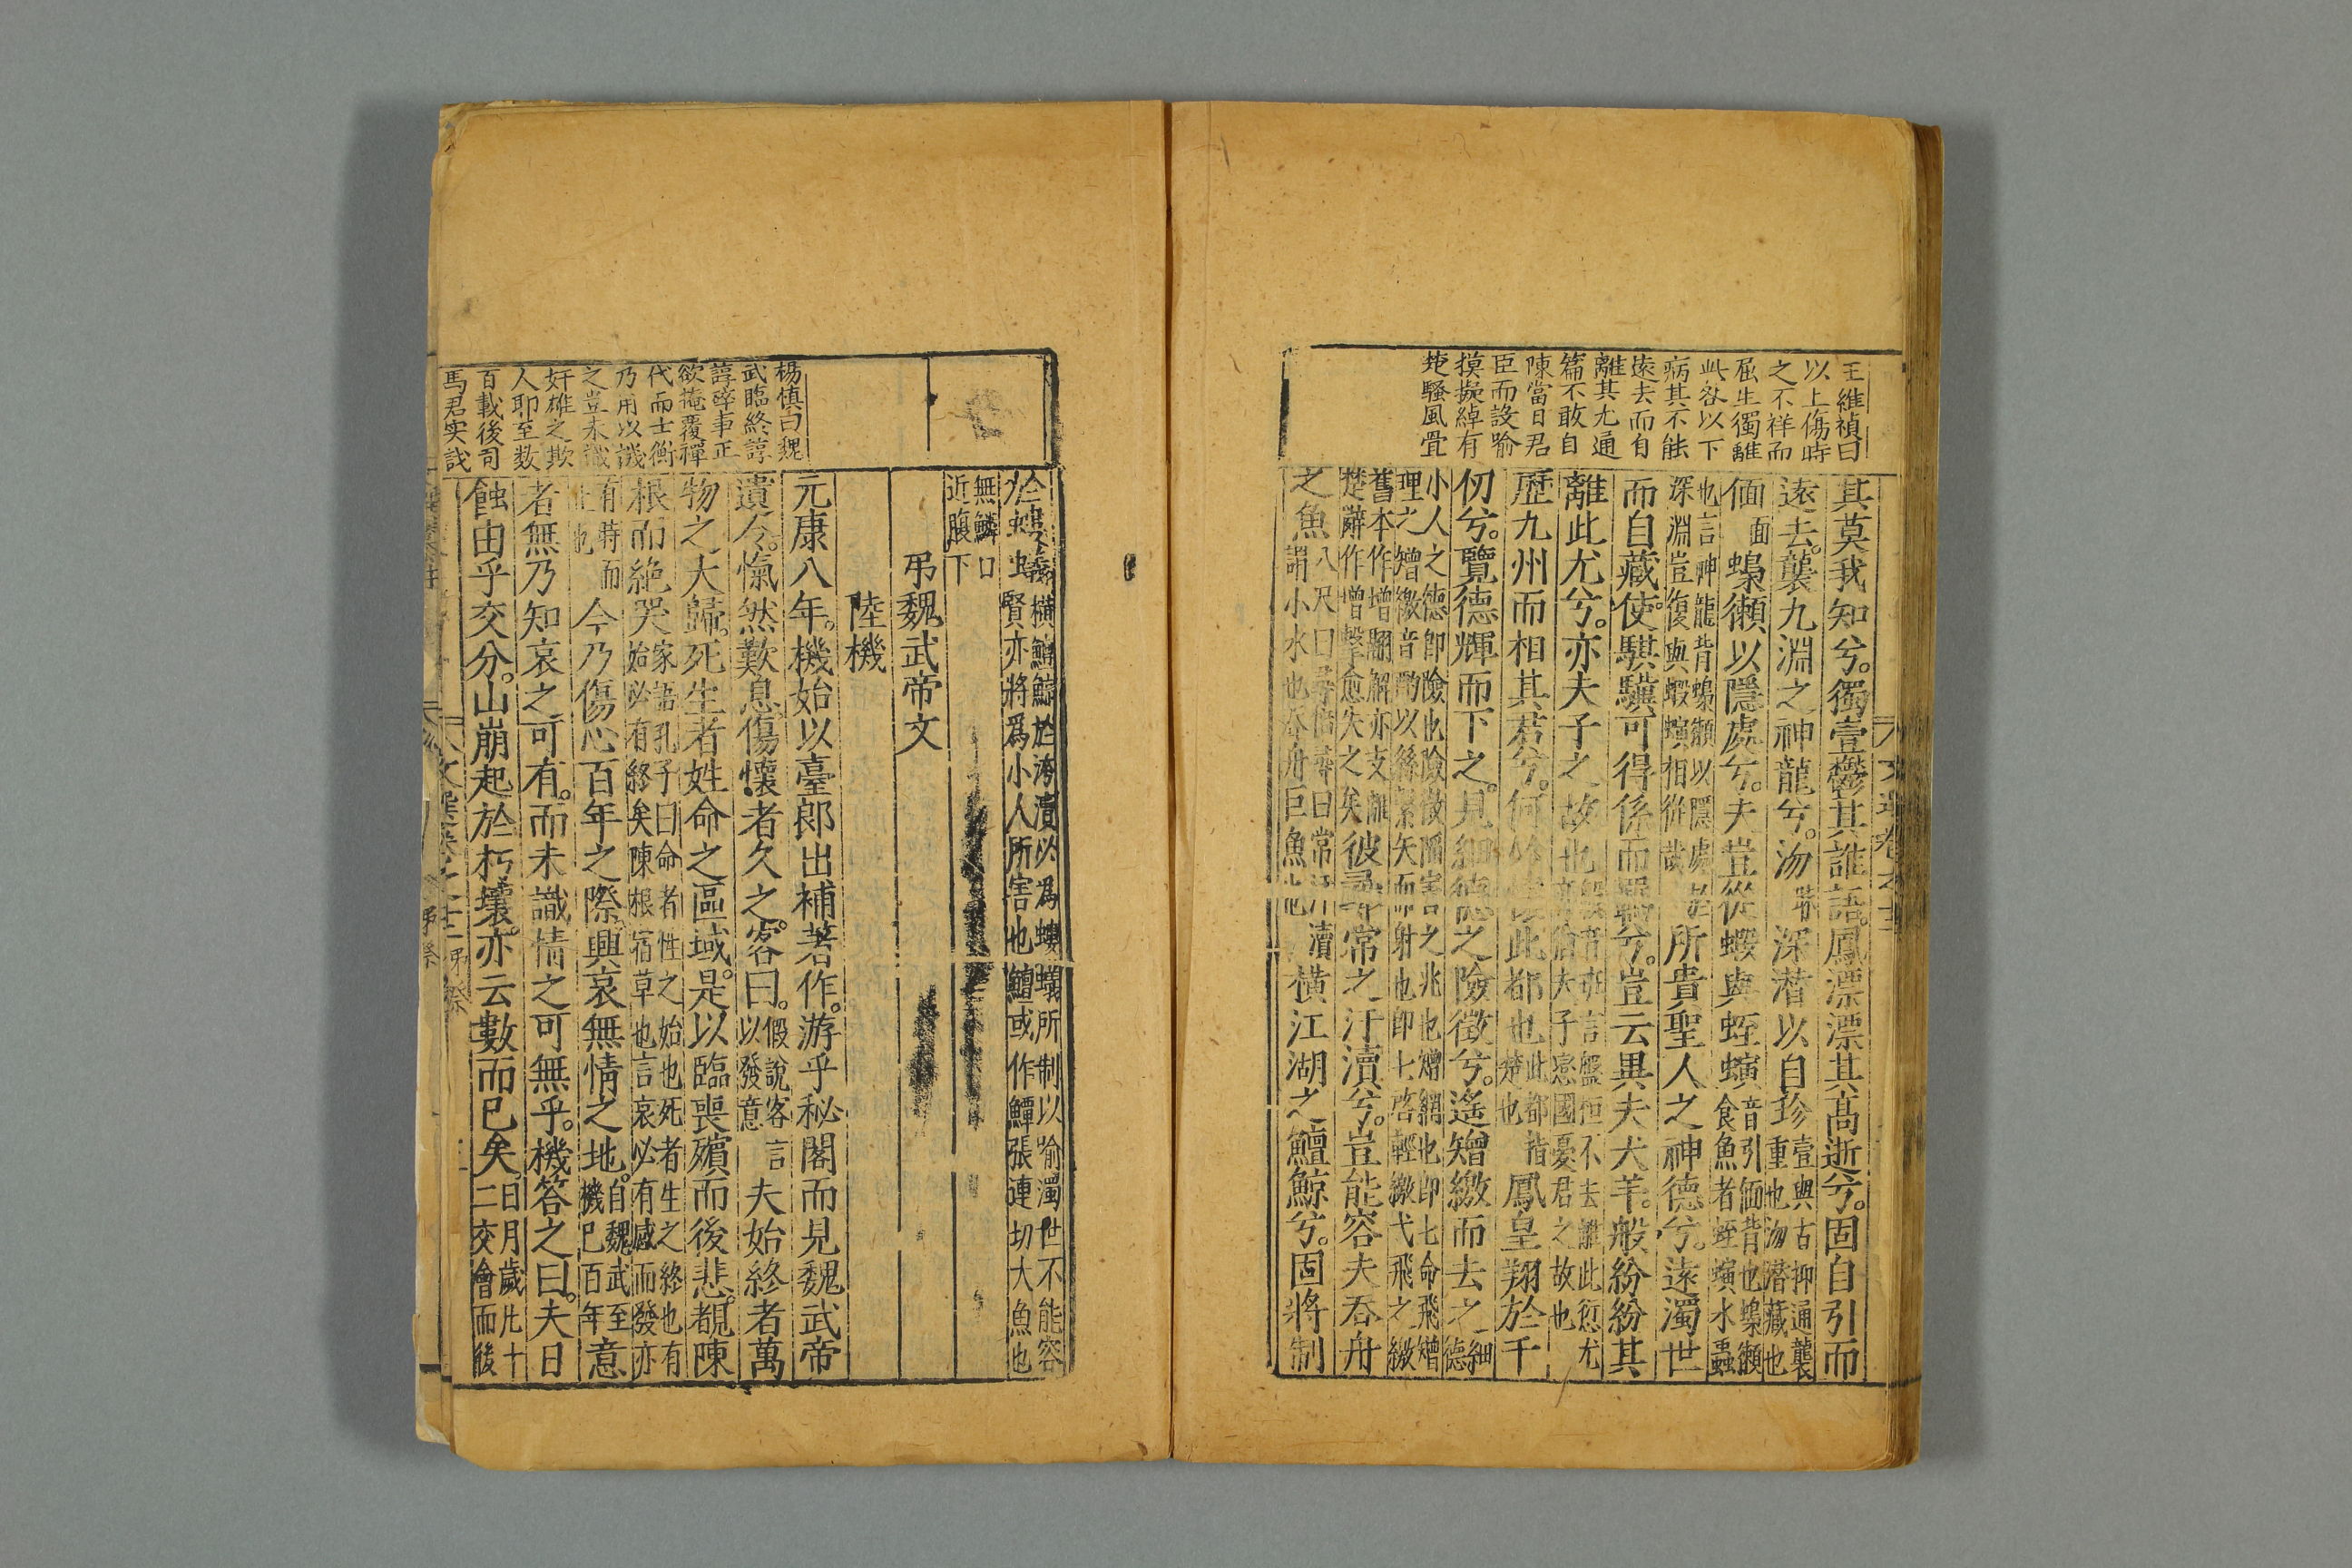 王維禎曰
以上傷時
之不祥而
屈生獨離
此咎以下
病其不能
遠去而自
離其尤通
篇不敢自
陳當日君
臣而設喻
摸擬綽有
楚騷風骨
其莫我知兮。獨壹鬱其誰語。鳳漂漂其高逝兮。固自引而
遠去。襲九淵之神龍兮。沕深潛以自珍
壹與古抑通襲
重也沕潛藏也
偭
面
蟂獺以隱處兮。夫豈從蝦與蛭螾
音引偭背也蟂獺
食魚者蛭螾水蟲
也言神龍背蟂獺以隱處
深淵豈復與蝦螾相從哉
所貴聖人之神德兮。遠濁世
而自藏。使騏驥可得係而羈兮。豈云異夫犬羊。般紛紛其
離此尤兮。亦夫子之故也
言盤桓不去離此愆尤
夫子戀國憂君之故也
歷九州而相其君兮。何必懷此都也
此都指
楚也
鳳皇翔於千
仞兮。覽德輝而下之。見細德之險徵兮。遙矰繳而去之
細
德
小人之德卽險也險徵陋害之兆也矰網也卽七命飛矰
理之矰繳音酌以絲繫矢而射也卽七啓輕繳弋飛之繳
舊本作增翮解亦支離
楚辭作增擊愈失之矣
彼尋常之汙瀆兮。豈能容夫吞舟
之魚
八尺曰尋倍尋曰常汙瀆
謂小水也吞舟巨魚也
橫江湖之鱣鯨兮。固將制
於螻蟻
橫鱣鯨於洿瀆以爲螻蟻所制以喻濁世不能容
賢亦將爲小人所害也鱣或作鱏張連切大魚也
無鱗口
近腹下
弔魏武帝文
陸機
楊慎曰魏
武臨終諄
諄碎事正
欲掩覆禪
代而士衡
乃用以譏
之豈未識
奸雄之欺
人耶至数
百載後司
馬君实哉
元康八年。機始以臺郎出補著作。游乎秘閣而見魏武帝
遺令。愾然歎息。傷懷者久之。客曰。
假說客言
以發意
夫始終者萬
物之大歸。死生者姓命之區域。是以臨喪殯而後悲。覩陳
根而絶哭
家語孔子曰命者性之始也死者生之終也有
始必有終矣陳根宿草也言哀必有感而發亦
有時而
止也
今乃傷心百年之際。興哀無情之地。
自魏武至
機已百年
意
者無乃知哀之可有。而未識情之可無乎。機答之曰。夫日
蝕由乎交分。山崩起於朽壤。亦云數而已矣。
日月歲凡十
二交會而後